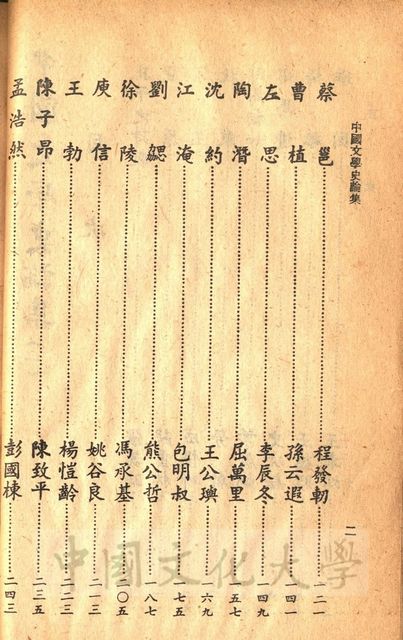 中國文學史論集
二
蔡邕 程發軔 一二一
曹植 孫云遐 一四一
左思 李辰冬 一四九
陶潛 屈萬里 一五七
沈約 王公璵 一六九
江淹 包明叔 一七五
劉勰 熊公哲 一八七
徐陵 馮承基 二〇五
庾信 姚谷良 二一三
王勃 楊愷齡 二二三
陳子昂 陳致平 二三五
孟浩然 彭國棟 二四三
中國文化大學